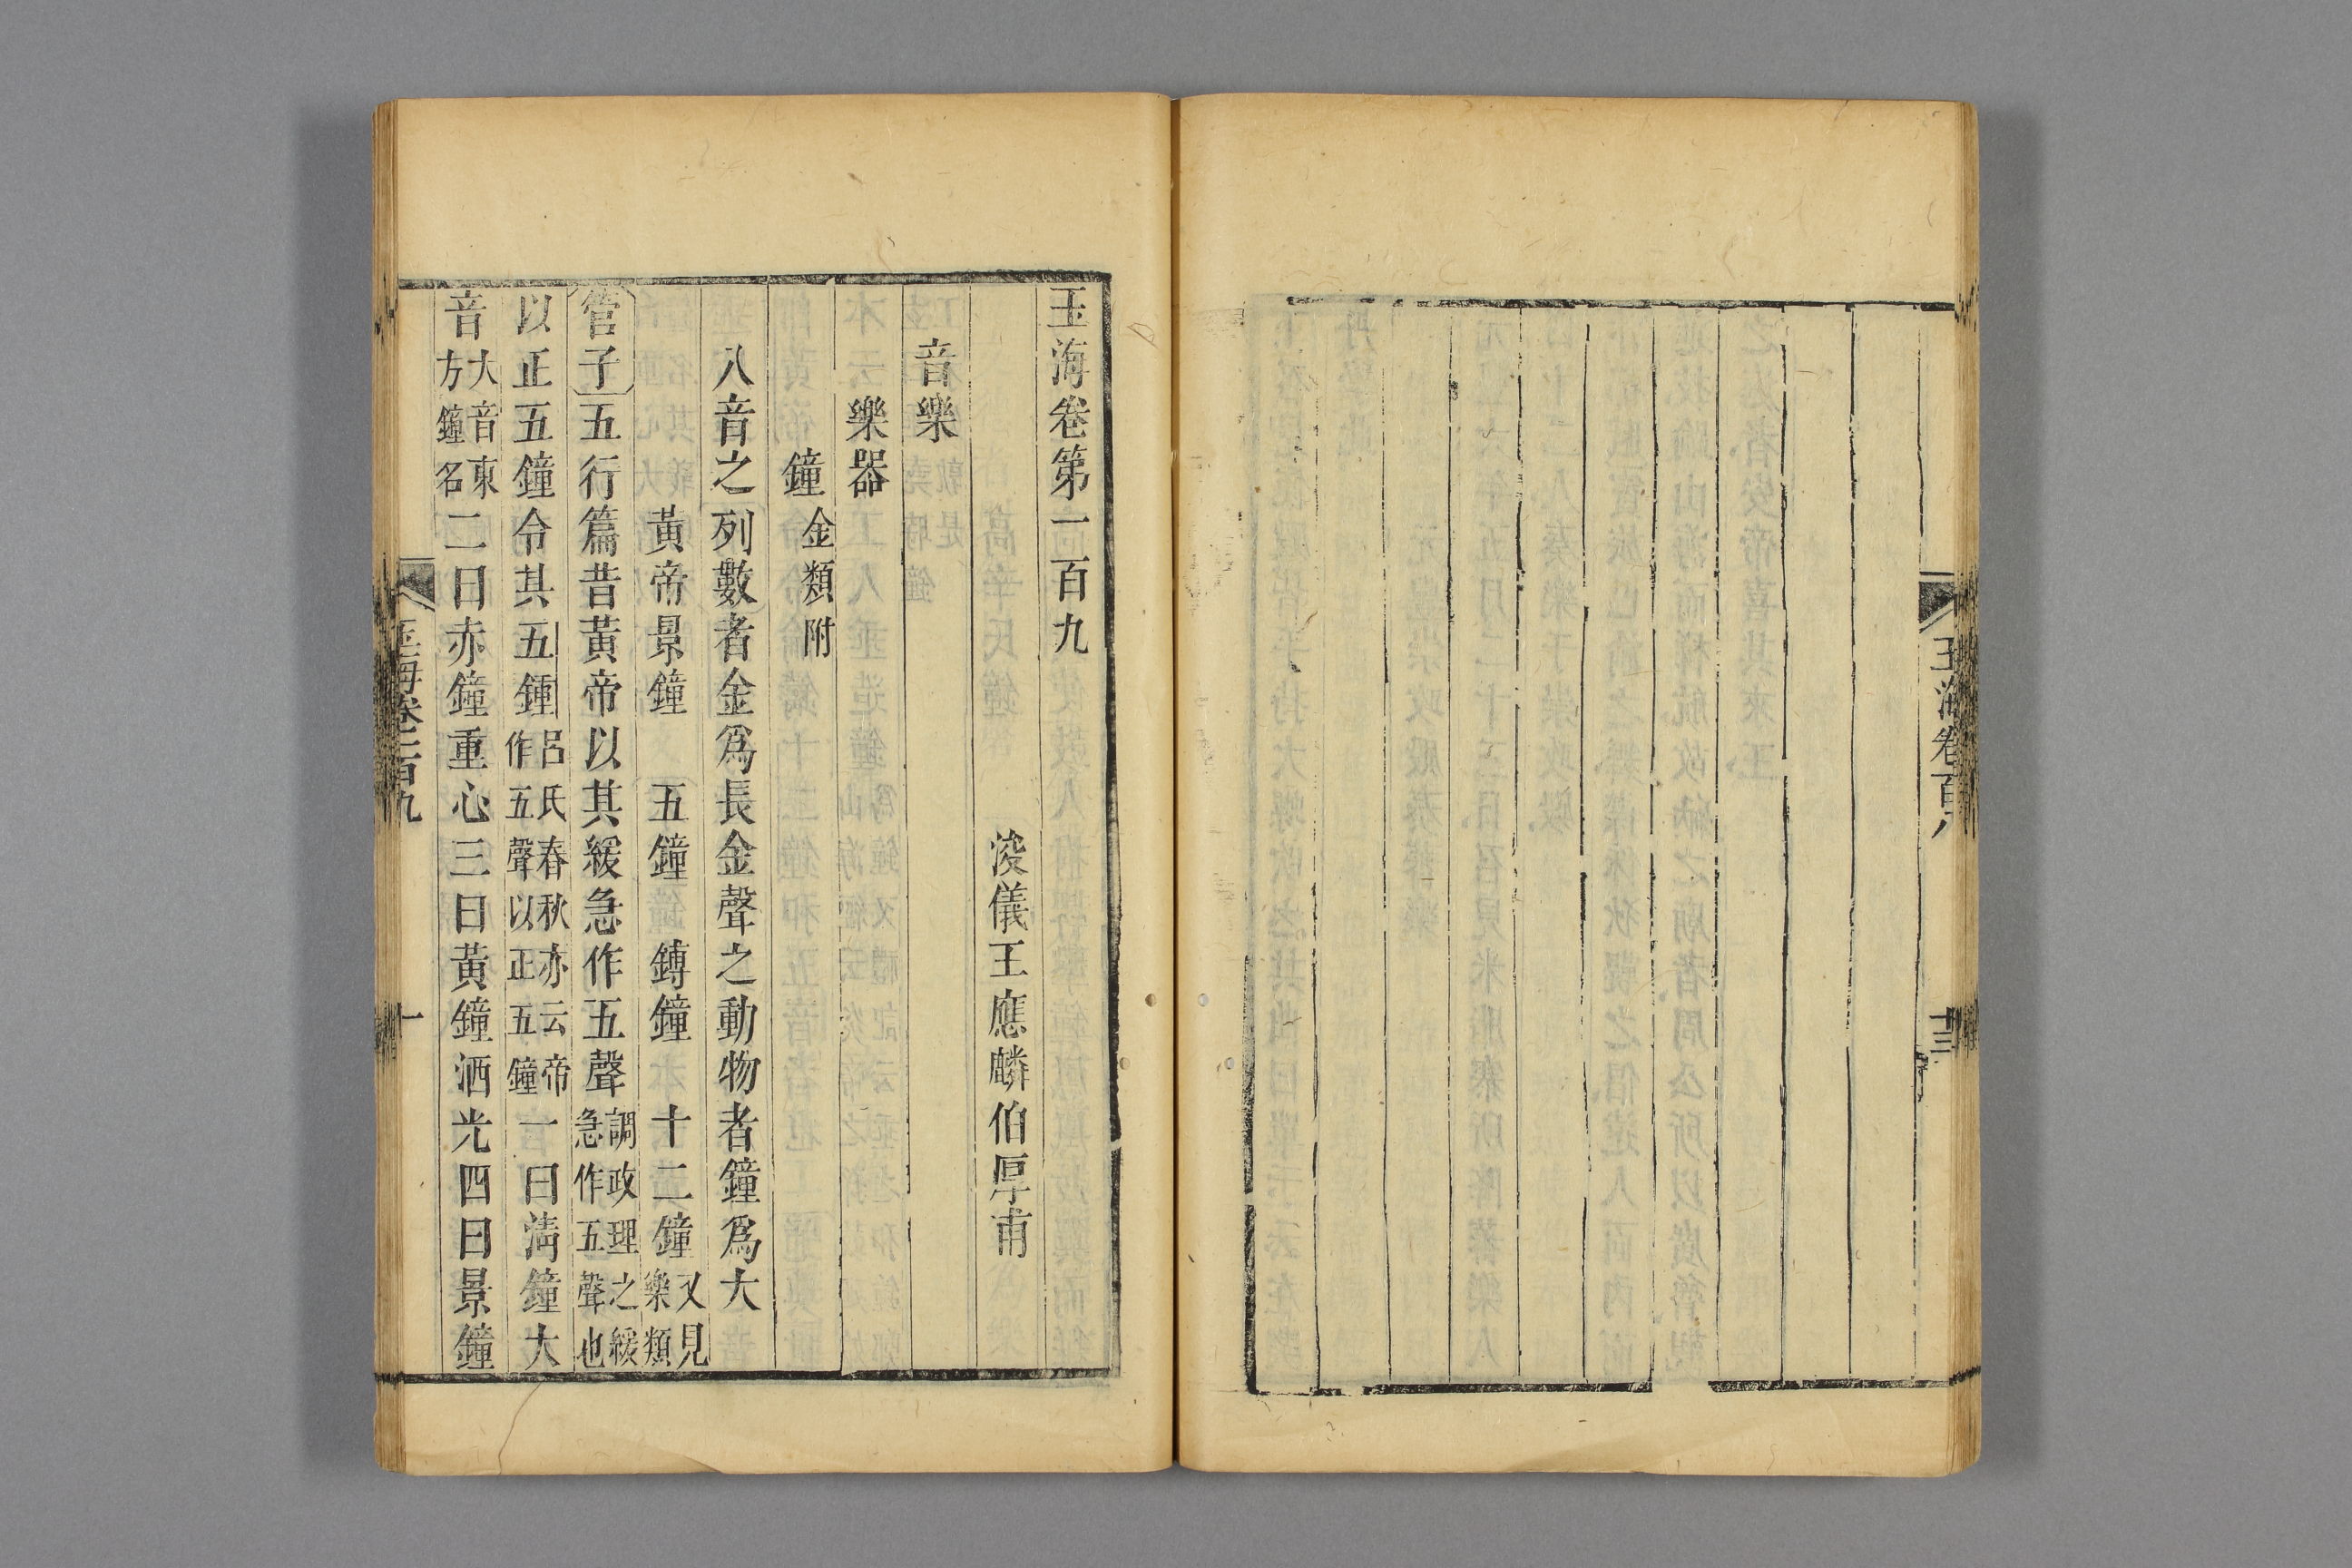 玉海卷百八
十三
玉海卷第一百九
浚儀王應麟伯厚甫
音樂
樂器
鐘金類附
八音之列數者金爲長金聲之動物者鐘爲大
黃帝景鐘 五鐘 鎛鐘 十二鐘又見樂類
管子五行篇昔黃帝以其緩急作五聲調政理之緩急作五聲也
以正五鐘令其五鍾呂氏春秋亦云帝作五聲以正五鐘一曰淸鐘大
音大音東方鐘名二曰赤鐘重心三曰黃鐘洒光四曰景鐘
玉海卷一百九
一